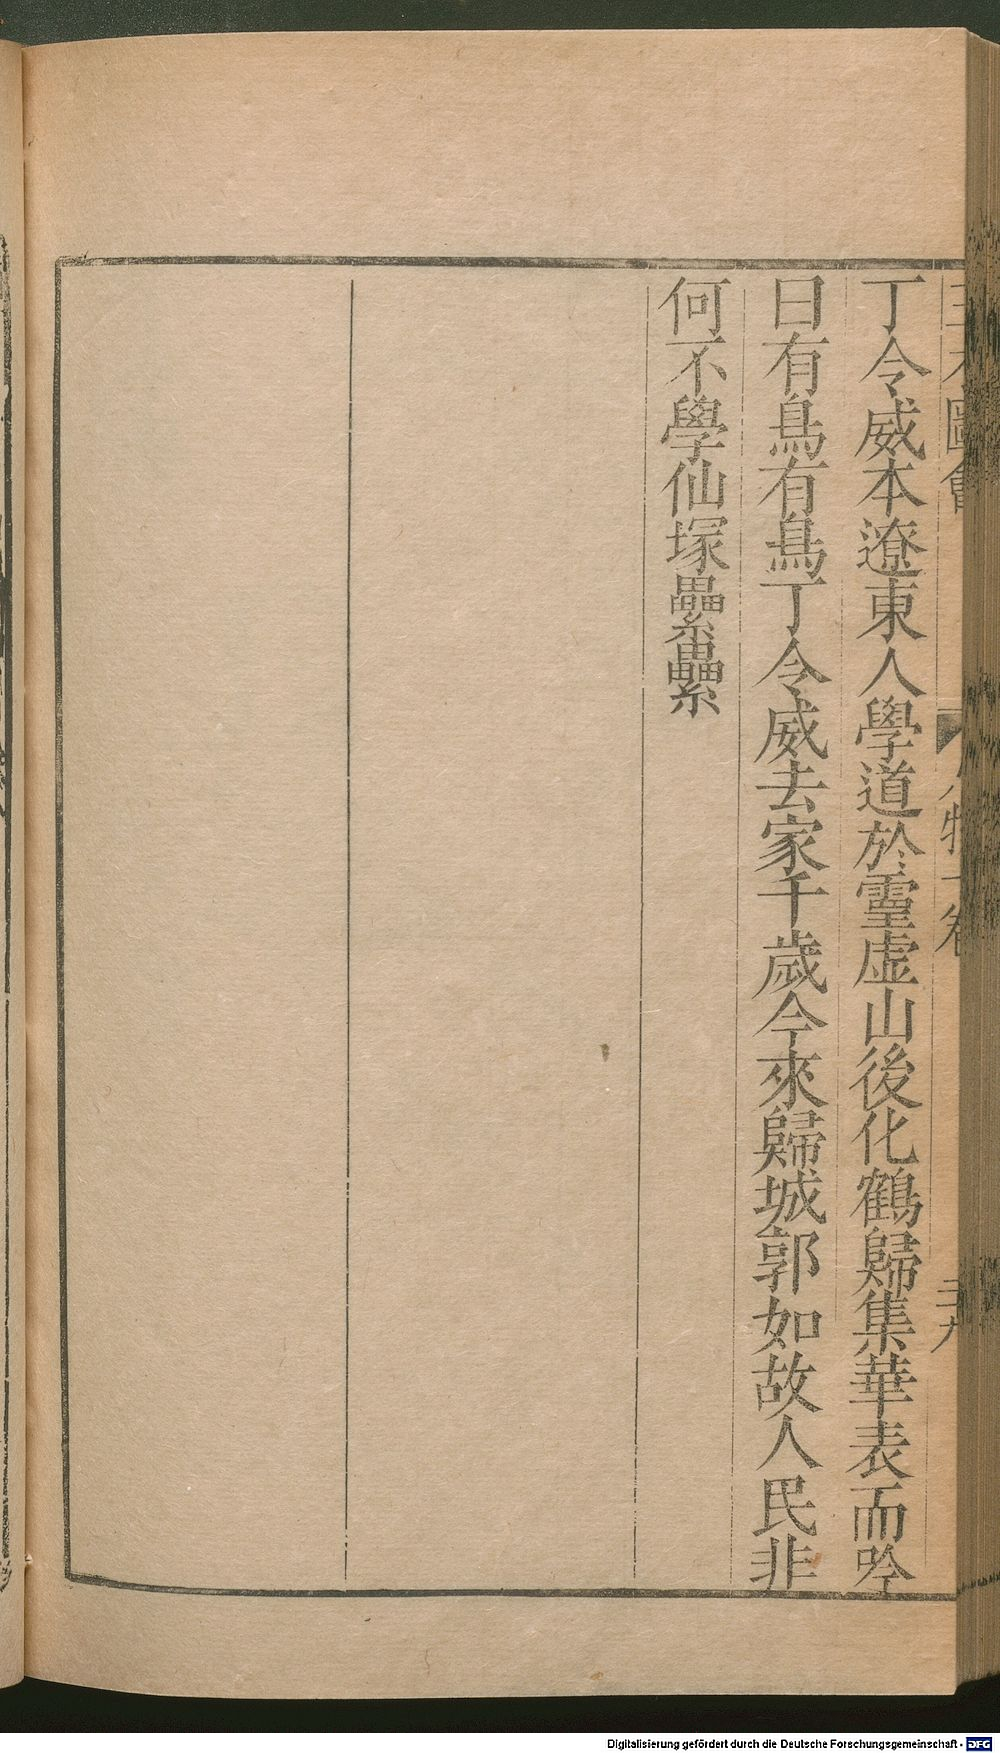 丁令威本遼東人學道於靈虚山後化鶴歸集華表而吟
曰有鳥有鳥丁令威去家千歲今來歸城郭如故人民非
何不學仙塚纍纍
圖會
卷
Digitalisierung gefördert durch die Deutsche Forschungsgemeinschaft - DFG